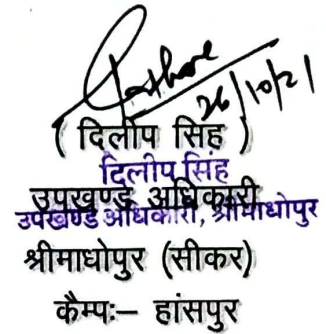 26/10/21
( दिलीप सिंह )
दिलीप सिंह
उपखण्ड अधिकारी
उपखण्ड अधिकारी, श्रीमाधोपुर
श्रीमाधोपुर (सीकर)
कैम्पः– हांसपुर